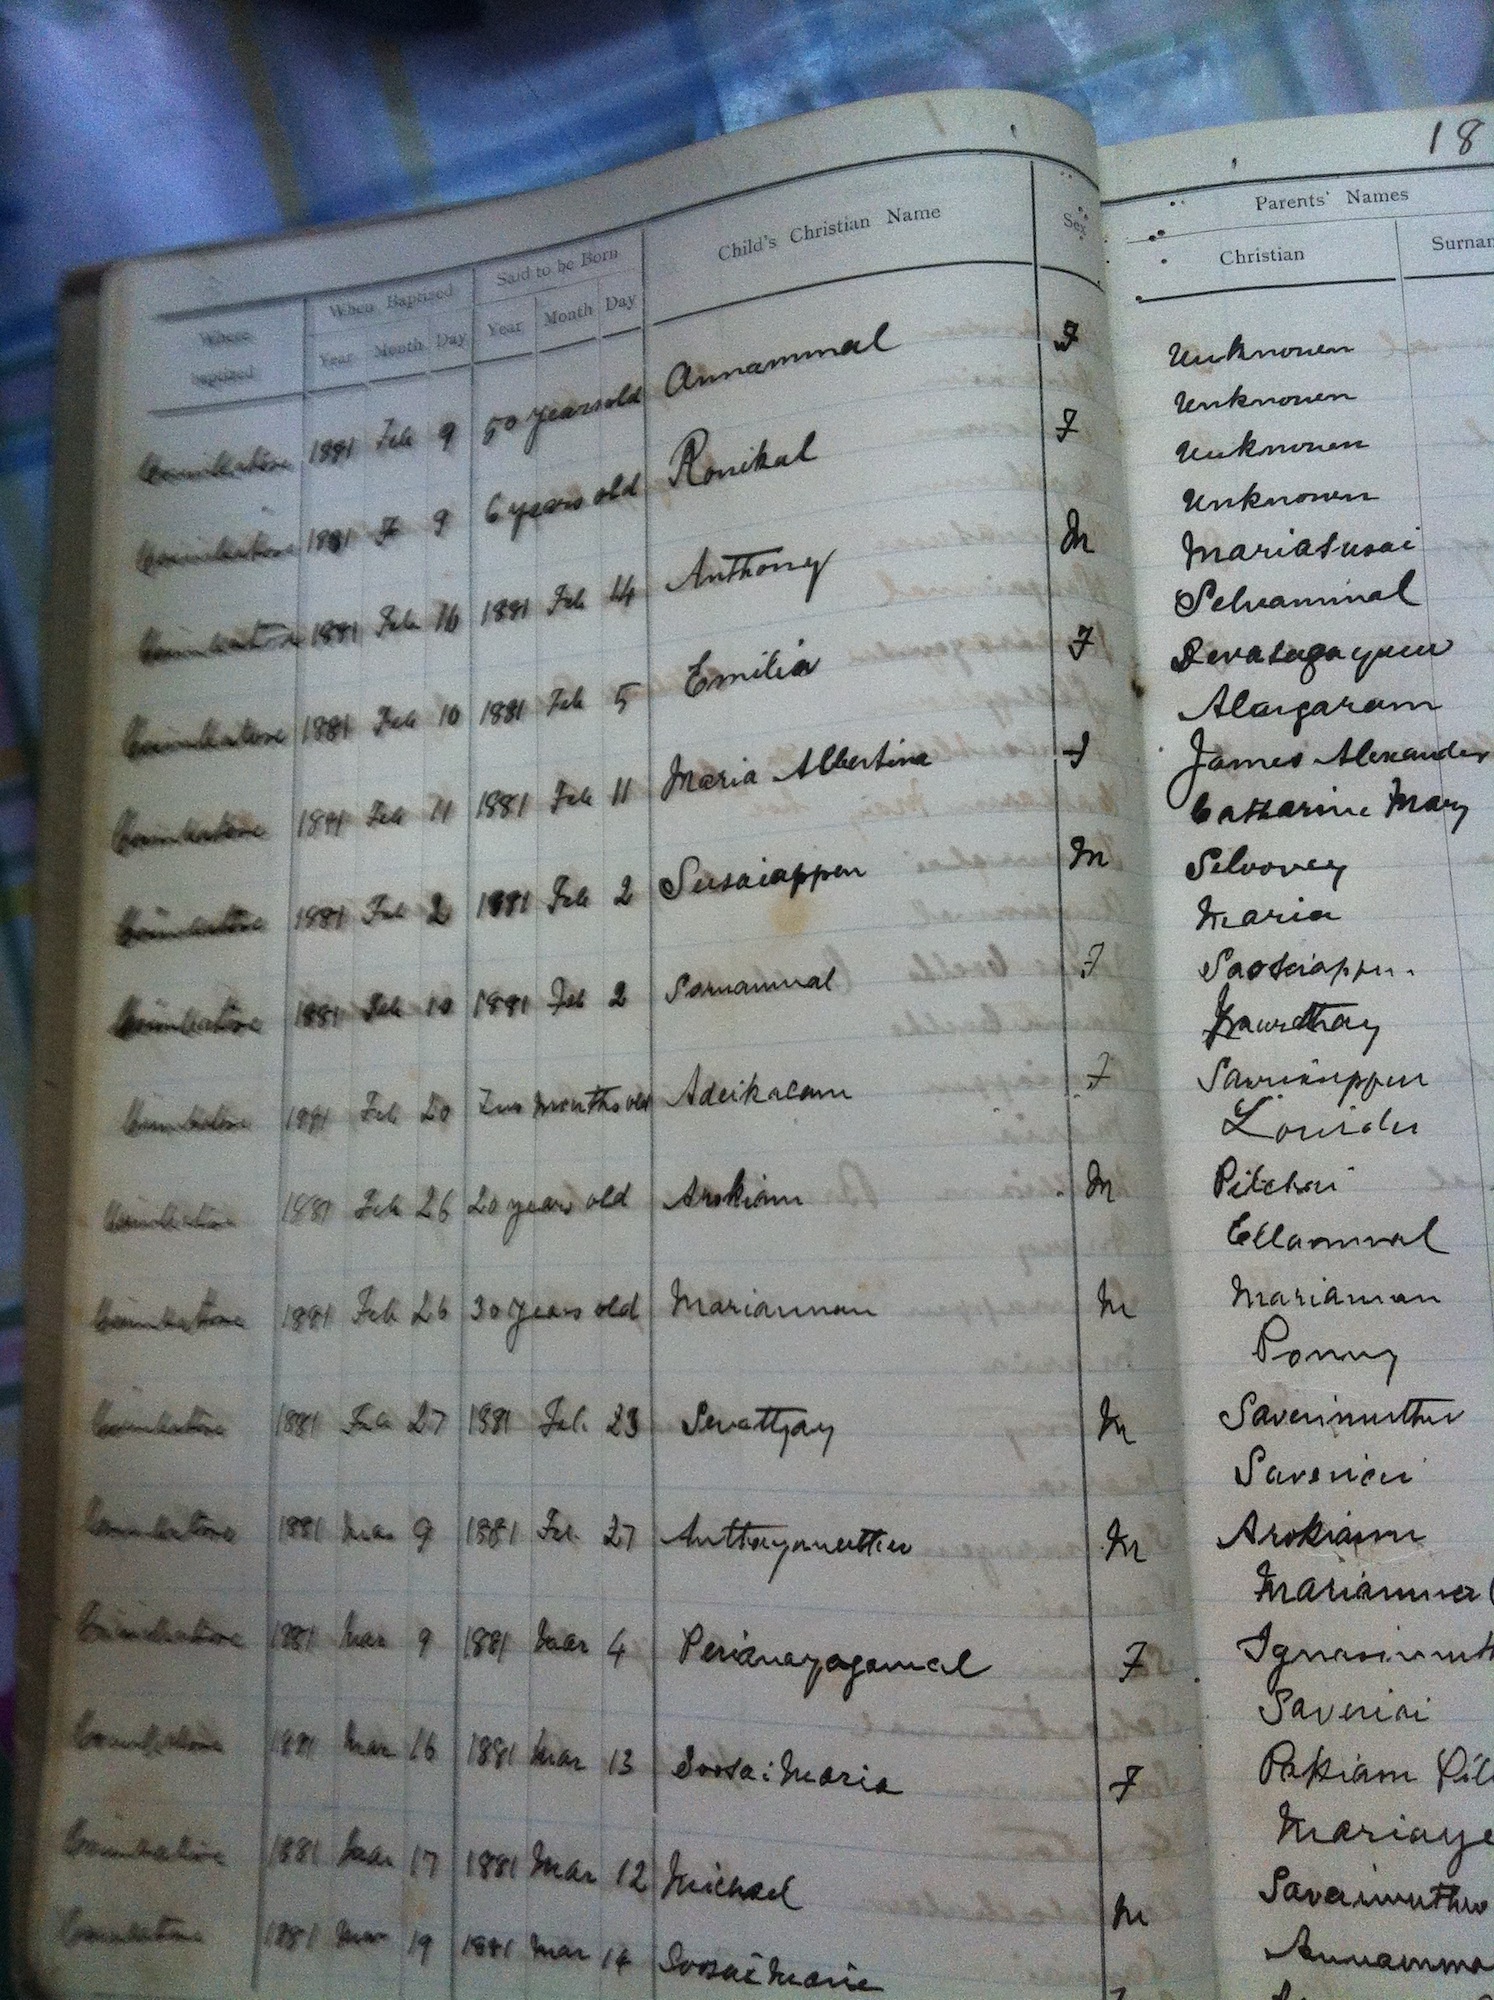 18
Where baptized
When Baptized
Year Month Day
Said to be Born
Year Month Day
Child's Christian Name
Sex
Parents' Names
Christian
Coimbatore 1881 Feb 9 50 years old Annammal F Unknown
Unknown
Coimbatore 1881 F 9 6 years old Ronikal F Unknown
Unknown
Coimbatore 1881 Feb 16 1881 Feb 14 Anthony M Mariasusai
Selvammal
Coimbatore 1881 Feb 10 1881 Feb 5 Emilia F Devasagayam
Alargaram
Coimbatore 1881 Feb 11 1881 Feb 11 Maria Albertina F James Alexander
Catharine Mary
Coimbatore 1881 Feb 2 1881 Feb 2 Susaiappen M
Maria
Coimbatore 1881 Feb 10 1881 Feb 2 Sornammal F
Coimbatore 1881 Feb 20 Two months old Adeikalam F
Coimbatore 1881 Feb 26 20 years old Arokiam M Pitchai
Ellammal
Coimbatore 1881 Feb 26 30 years old Mariannan M Mariannan
Ponny
Coimbatore 1881 Feb 27 1881 Feb 23 Sevathyay M Saverimuthu
Saveriai
Coimbatore 1881 Mar 9 1881 Feb 27 Anthonymuthu M Arokiam
Coimbatore 1881 Mar 9 1881 Mar 4 Perianayagamal F
Saveriai
Coimbatore 1881 Mar 16 1881 Mar 13 Soosai Maria F Pakiam
Coimbatore 1881 Mar 17 1881 Mar 12 Michael M Saverimuthu
Coimbatore 1881 Mar 19 1881 Mar 14 Soosai Marie